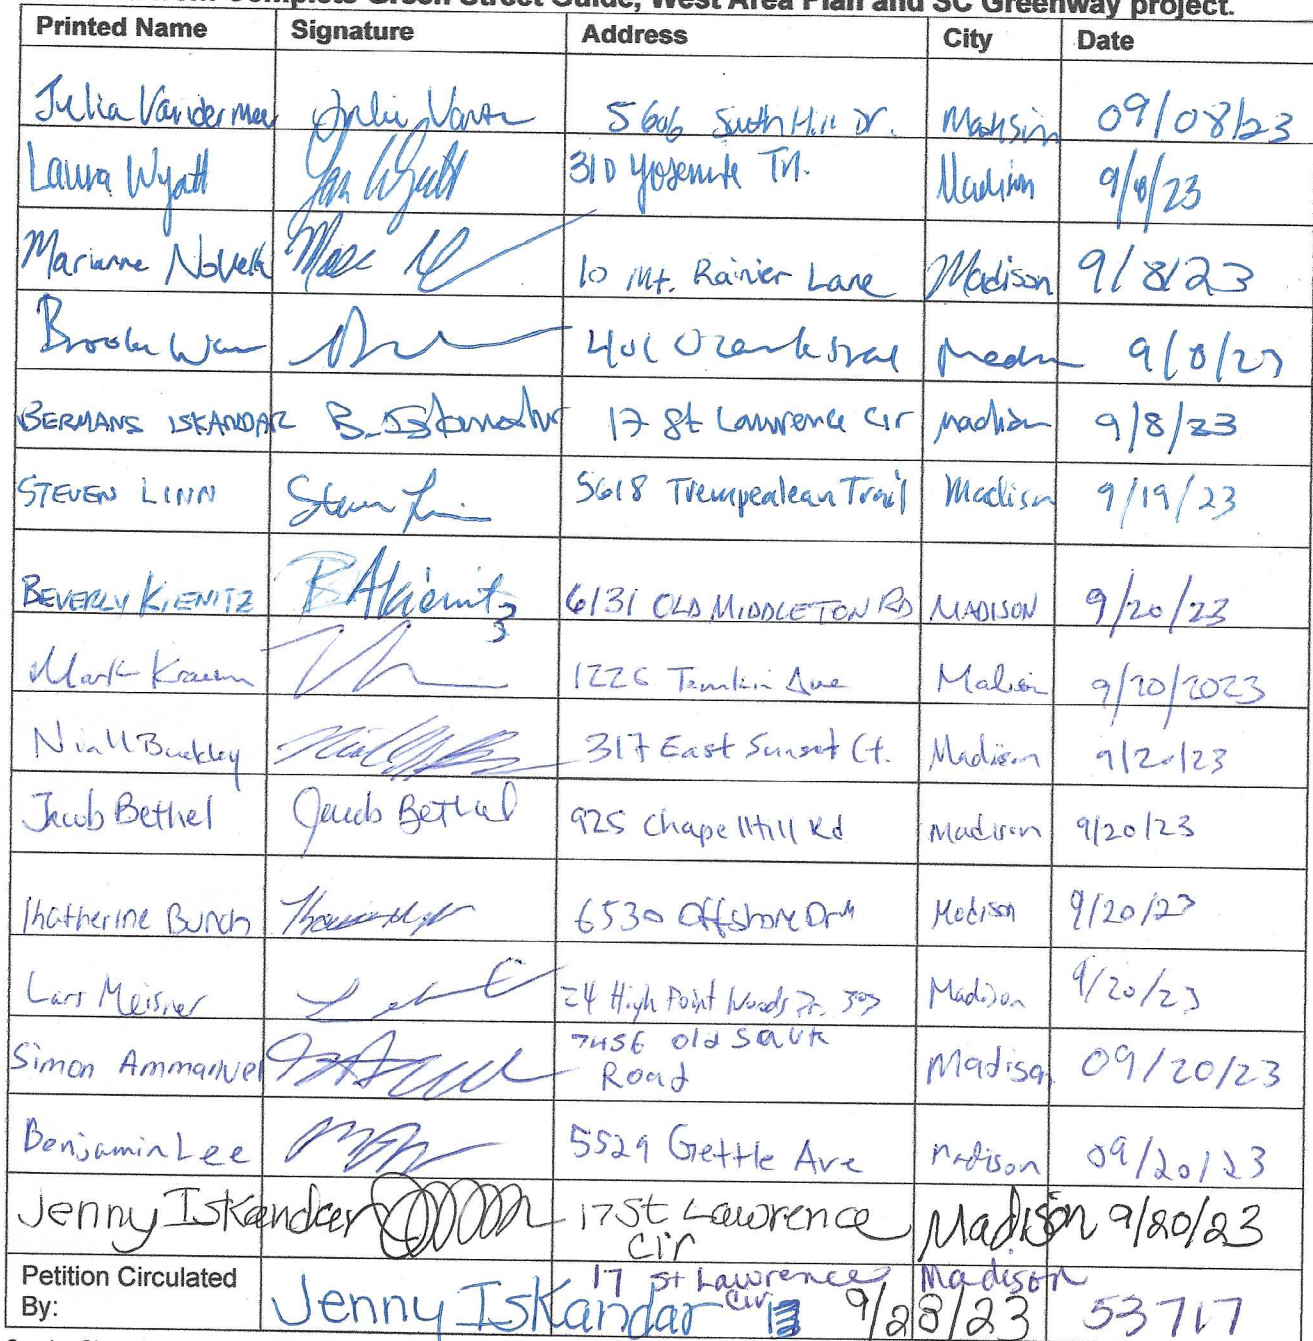 Complete Green Street Guide, West Area Plan and SC Greenway project.
Printed Name Signature Address City Date
Julia Vandermeer 5606 South Hill Dr. Madison 09/08/23
Laura Wyatt 310 Yosemite Trl. Madison 9/8/23
Marianne Novella 10 Mt. Rainier Lane Madison 9/8/23
Brooke 401 Ozark 9/8/23
BERMANS ISKANDAR B. Iskandar 17 St Lawrence Cir Madison 9/8/23
STEVEN LINN 5618 Trempealeau Trail Madison 9/19/23
BEVERLY KIENITZ BAKienitz 6131 OLD MIDDLETON RD MADISON 9/20/23
Mark 1226 Tamlin Ave Madison 9/20/2023
Niall Buckley 317 East Sunset Ct. Madison 9/20/23
Jacob Bethel Jacob Bethel 925 Chapel Hill Rd Madison 9/20/23
Khatherine Bunch 6530 Offshore Dr Madison 9/20/23
Lars Meisner 24 High Point Woods Dr. 303 Madison 9/20/23
Simon Ammanuel 7456 old Sauk Road Madison 09/20/23
Benjamin Lee 5529 Gettle Ave Madison 09/20/23
Jenny Iskandar 17 St Lawrence Cir Madison 9/20/23
Petition Circulated By: Jenny Iskandar 17 St Lawrence Cir Madison 9/28/23 53717